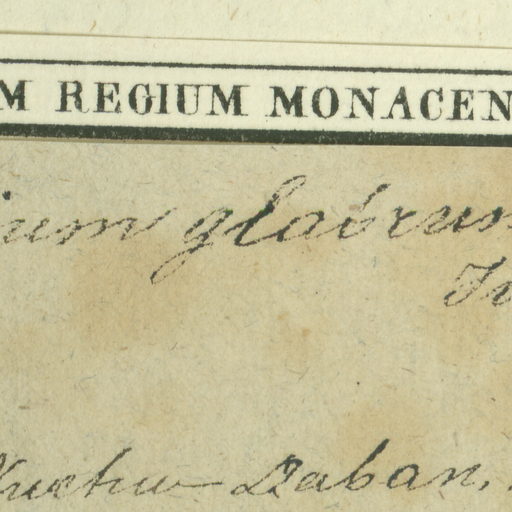 M REGIUM MONACEN
ium glabrum
Daban.